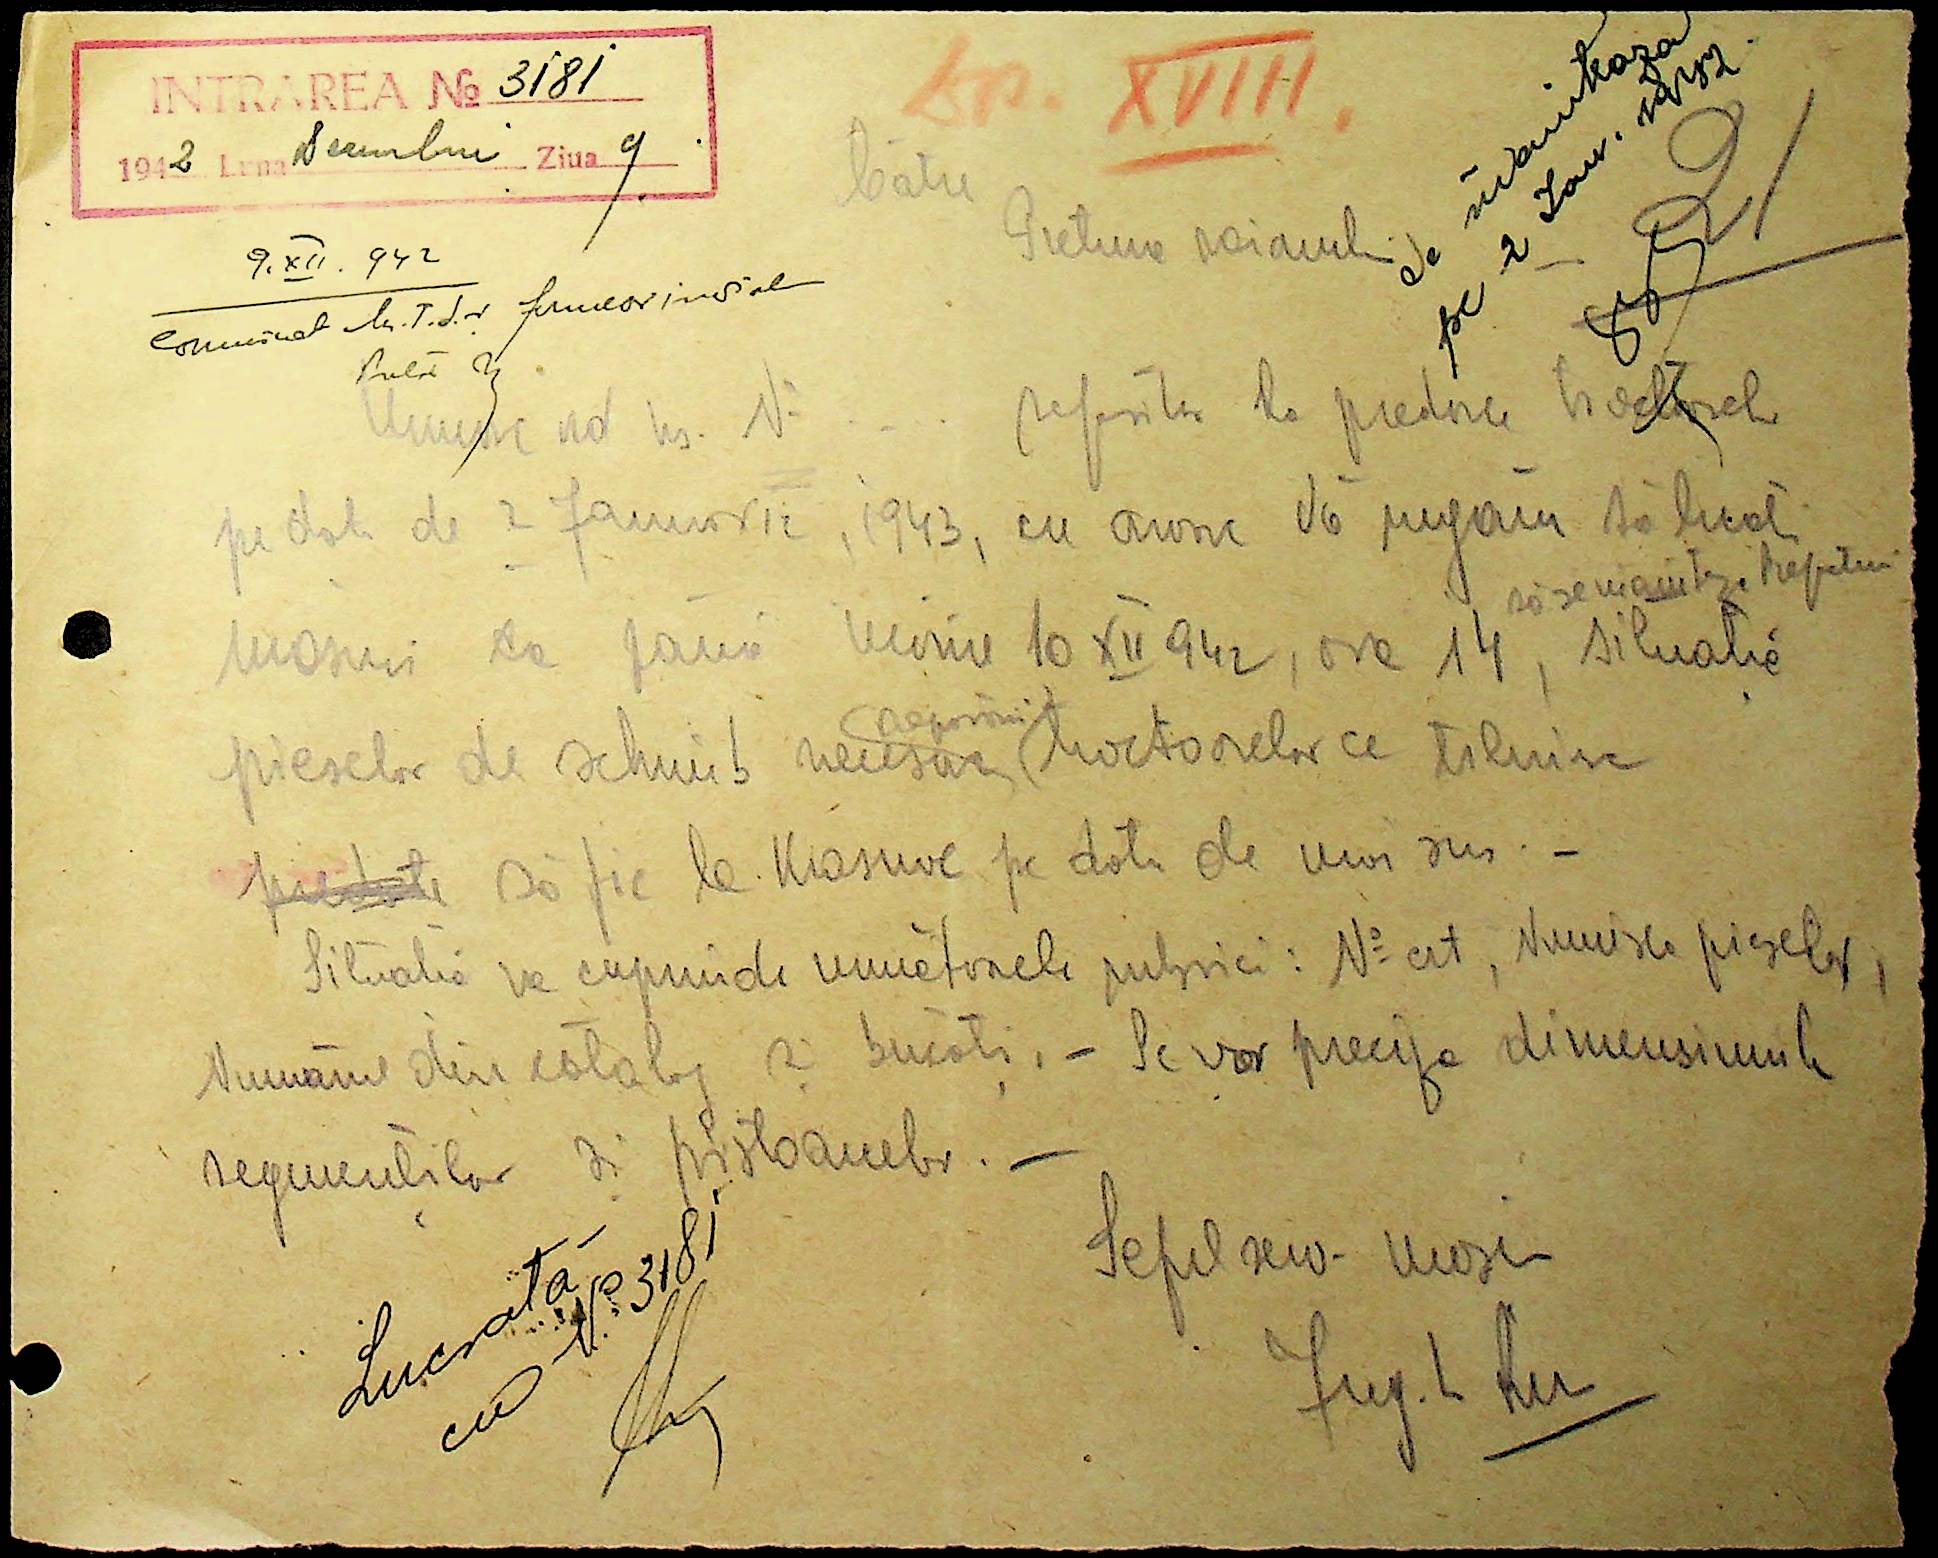 INTRAREA № 3181
1942 Luna Decembrie Ziua 9
Ds. XVIII.
21
9.XII.942
pe 2 Ian.
Către
Pretura raionului
Urmare ord. ns. № .... referitor la predarea tractoarelor
pe data de 2 Januarie, 1943, cu onoare Vă rugăm să luați
să se
măsuri ca până mâine 10 XII 942, ora 14, situația
reparării
pieselor de schimb necesare tractoarelor ce trebuisc
predate să fie la pe data de mai sus. -
Situația va cuprinde următoarele rubrici: № crt, Numirea pieselor,
Numărul din catalog și bucăți. - Se vor preciza dimensiunile
segmenților și pistoanelor. -
Șeful serv. mașin
Ing.
Lucrată
cu № 3181